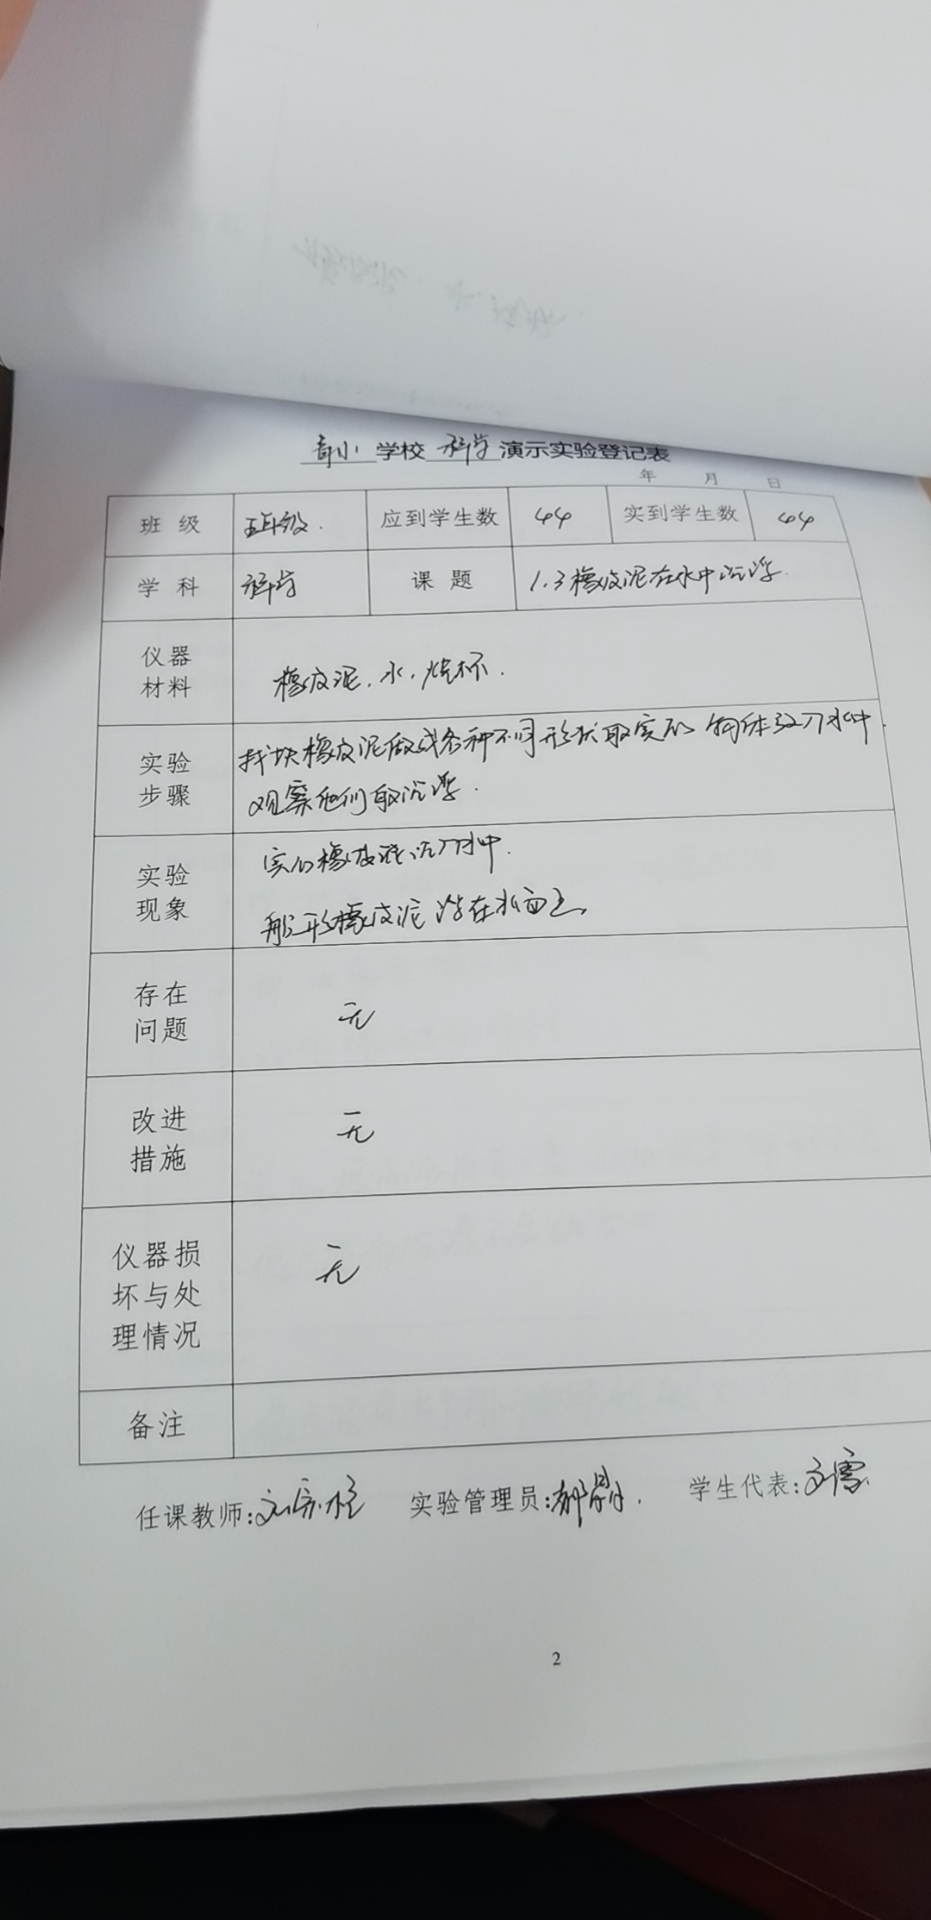 学校 科学 演示实验登记表
年 月 日
班 级 五年级. 应到学生数 44 实到学生数 44
学 科 科学 课 题 1.3橡皮泥在水中沉浮.
仪器
材料
橡皮泥. 水. 烧杯.
实验
步骤
找块橡皮泥做成各种不同形状取实心 物体放入水中.
观察他们的沉浮.
实验
现象
实心橡皮泥沉入水中.
船形橡皮泥浮在水面上.
存在
问题
无
改进
措施
无
仪器损
坏与处
理情况
无
备注
任课教师: 实验管理员: 学生代表:
2